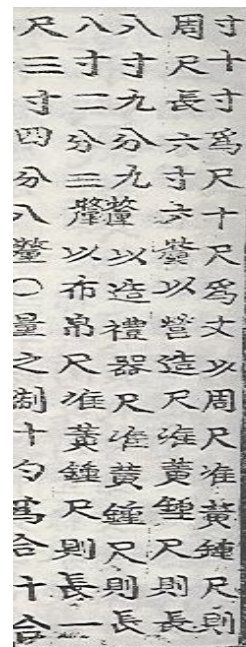 寸十寸爲尺十尺爲丈以周尺准黃鍾尺則
周尺長六寸六釐以營造尺准黃鍾尺則長
八寸九分九釐以造禮器尺准黃鍾尺則長
八寸二分三釐以布帛尺准黃鍾尺則長一
尺三寸四分八釐○量之制十勺爲合十合